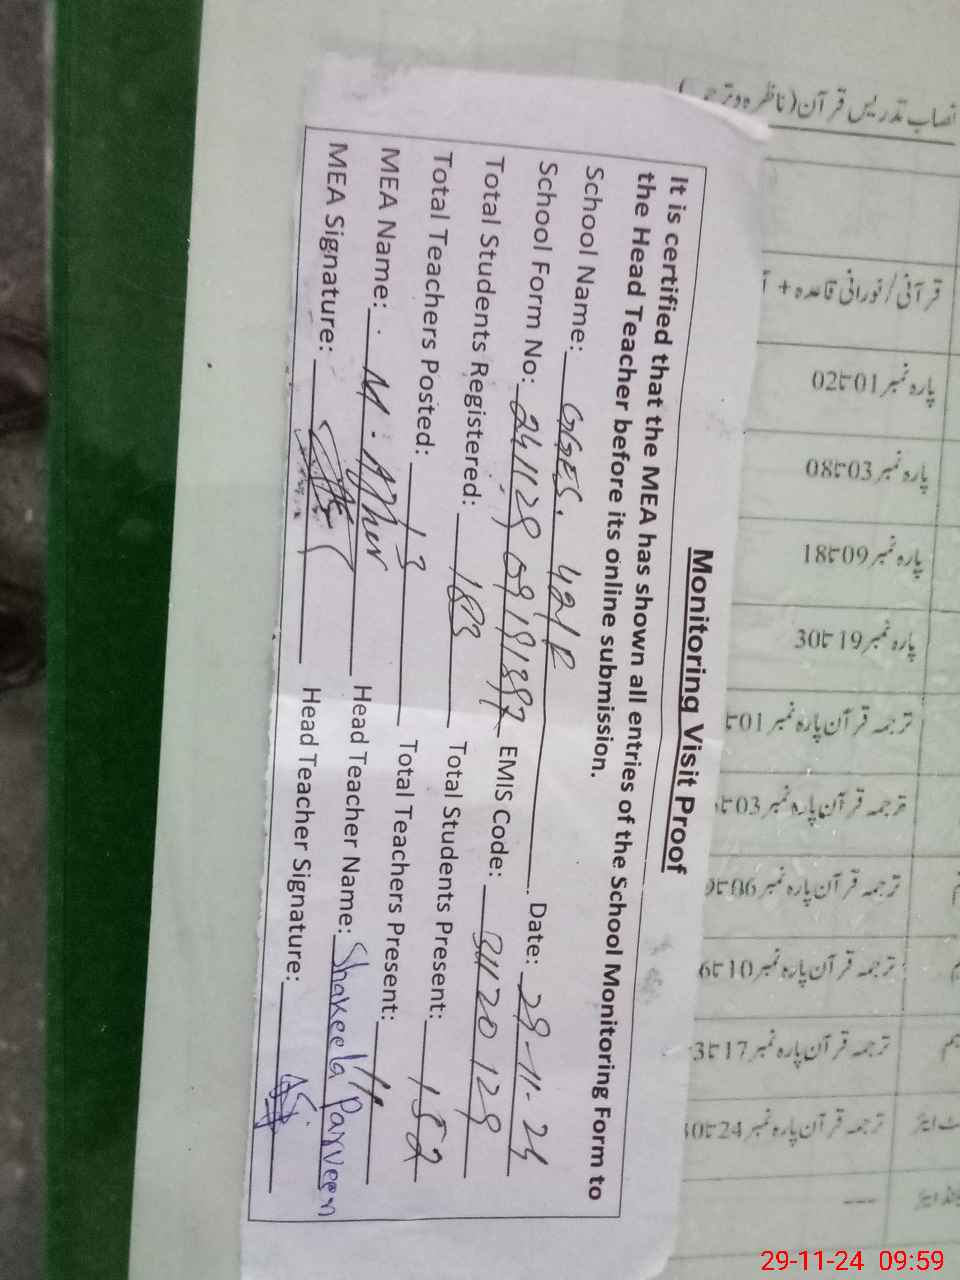 Monitoring Visit Proof
It is certified that the MEA has shown all entries of the School Monitoring Form to
the Head Teacher before its online submission.
School Name: GGES. 42/R Date: 29-11-24
School Form No: 241129 EMIS Code: 31120129
Total Students Registered: 183 Total Students Present: 152
Total Teachers Posted: 13 Total Teachers Present: 11
MEA Name: M. Head Teacher Name: Shakeela Parveen
MEA Signature: Head Teacher Signature:
نصاب تدریس قرآن (ناظرہ و
قرآنی/نورانی قاعدہ +
پارہ نمبر 01 تا 02
پارہ نمبر 03 تا 08
پارہ نمبر 09 تا 18
پارہ نمبر 19 تا 30
ترجمہ قرآن پارہ نمبر 01 تا
ترجمہ قرآن پارہ نمبر 03 تا
ترجمہ قرآن پارہ نمبر 06 تا
ترجمہ قرآن پارہ نمبر 10 تا
ترجمہ قرآن پارہ نمبر 17 تا
ترجمہ قرآن پارہ نمبر 24 تا
---
29-11-24 09:59